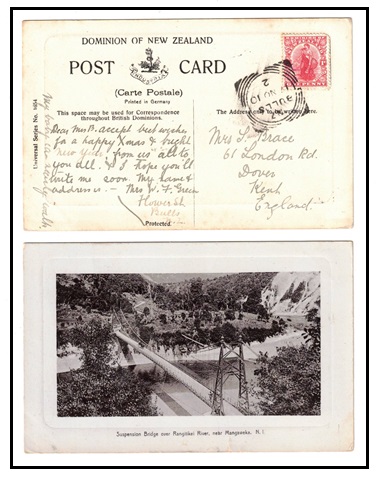 DOMINION OF NEW ZEALAND
POST CARD
(Carte Postale)
Printed in Germany
This space may be used for Correspondence
throughout British Dominions.
The Address only to be written here.
Universal Series No. 1604
Dear Mrs B. accept best wishes
for a happy Xmas & bright
New Year from us all to
you all. & I hope you'll
write me soon. My name &
address is:- Mrs W. F. Green
Flower St.
Bulls
Protected
Mrs S. Brace
61 London Rd.
Dover
Kent
England
BULLS
NO 10
2
Suspension Bridge over Rangitikei River, near Mangaweka. N.I.